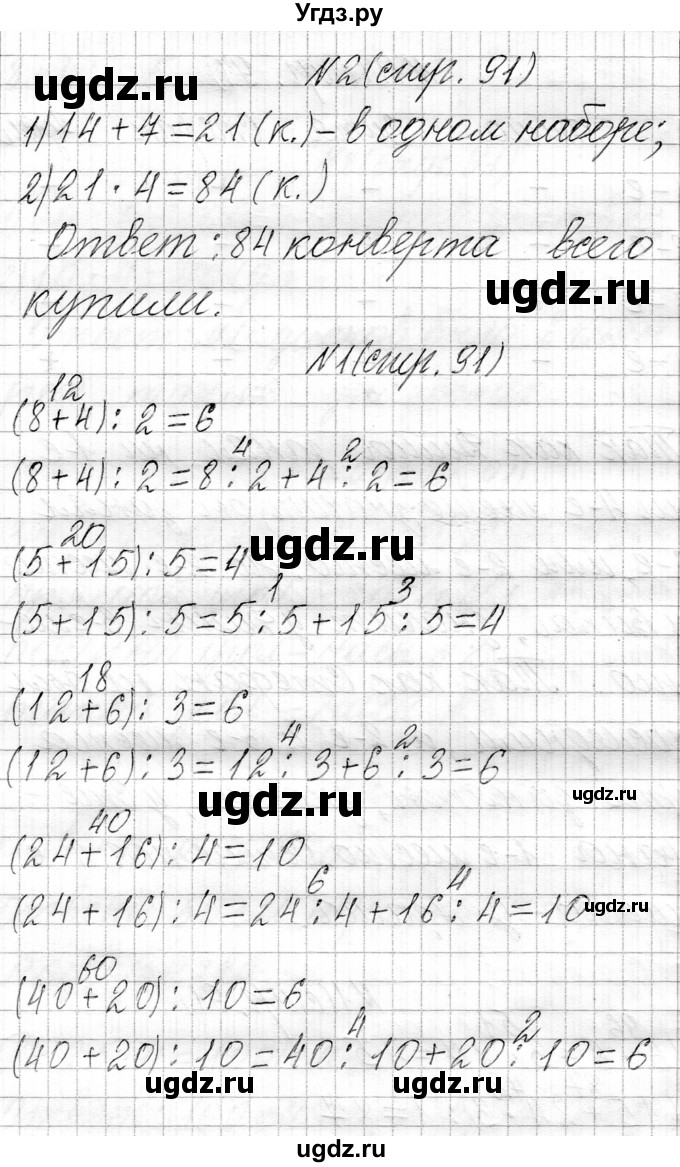 Угдз.ру
ugdz.ru
N2(стр. 91)
1) 14 + 7 = 21 (к.) - в одном наборе;
2) 21 · 4 = 84 (к.)
Ответ: 84 конверта всего
ugdz.ru
купили.
N1(стр. 91)
12
(8+4) : 2 = 6
4 2
(8+4) : 2 = 8 : 2 + 4 : 2 = 6
20
ugdz.ru
(5+15) : 5 = 4
1 3
(5+15) : 5 = 5 : 5 + 15 : 5 = 4
18
(12+6) : 3 = 6
4 2
(12+6) : 3 = 12 : 3 + 6 : 3 = 6
ugdz.ru
ugdz.ru
40
(24+16) : 4 = 10
6 4
(24+16) : 4 = 24 : 4 + 16 : 4 = 10
ugdz.ru
60
(40+20) : 10 = 6
4 2
(40+20) : 10 = 40 : 10 + 20 : 10 = 6
ugdz.ru
ugdz.ru
ugdz.ru